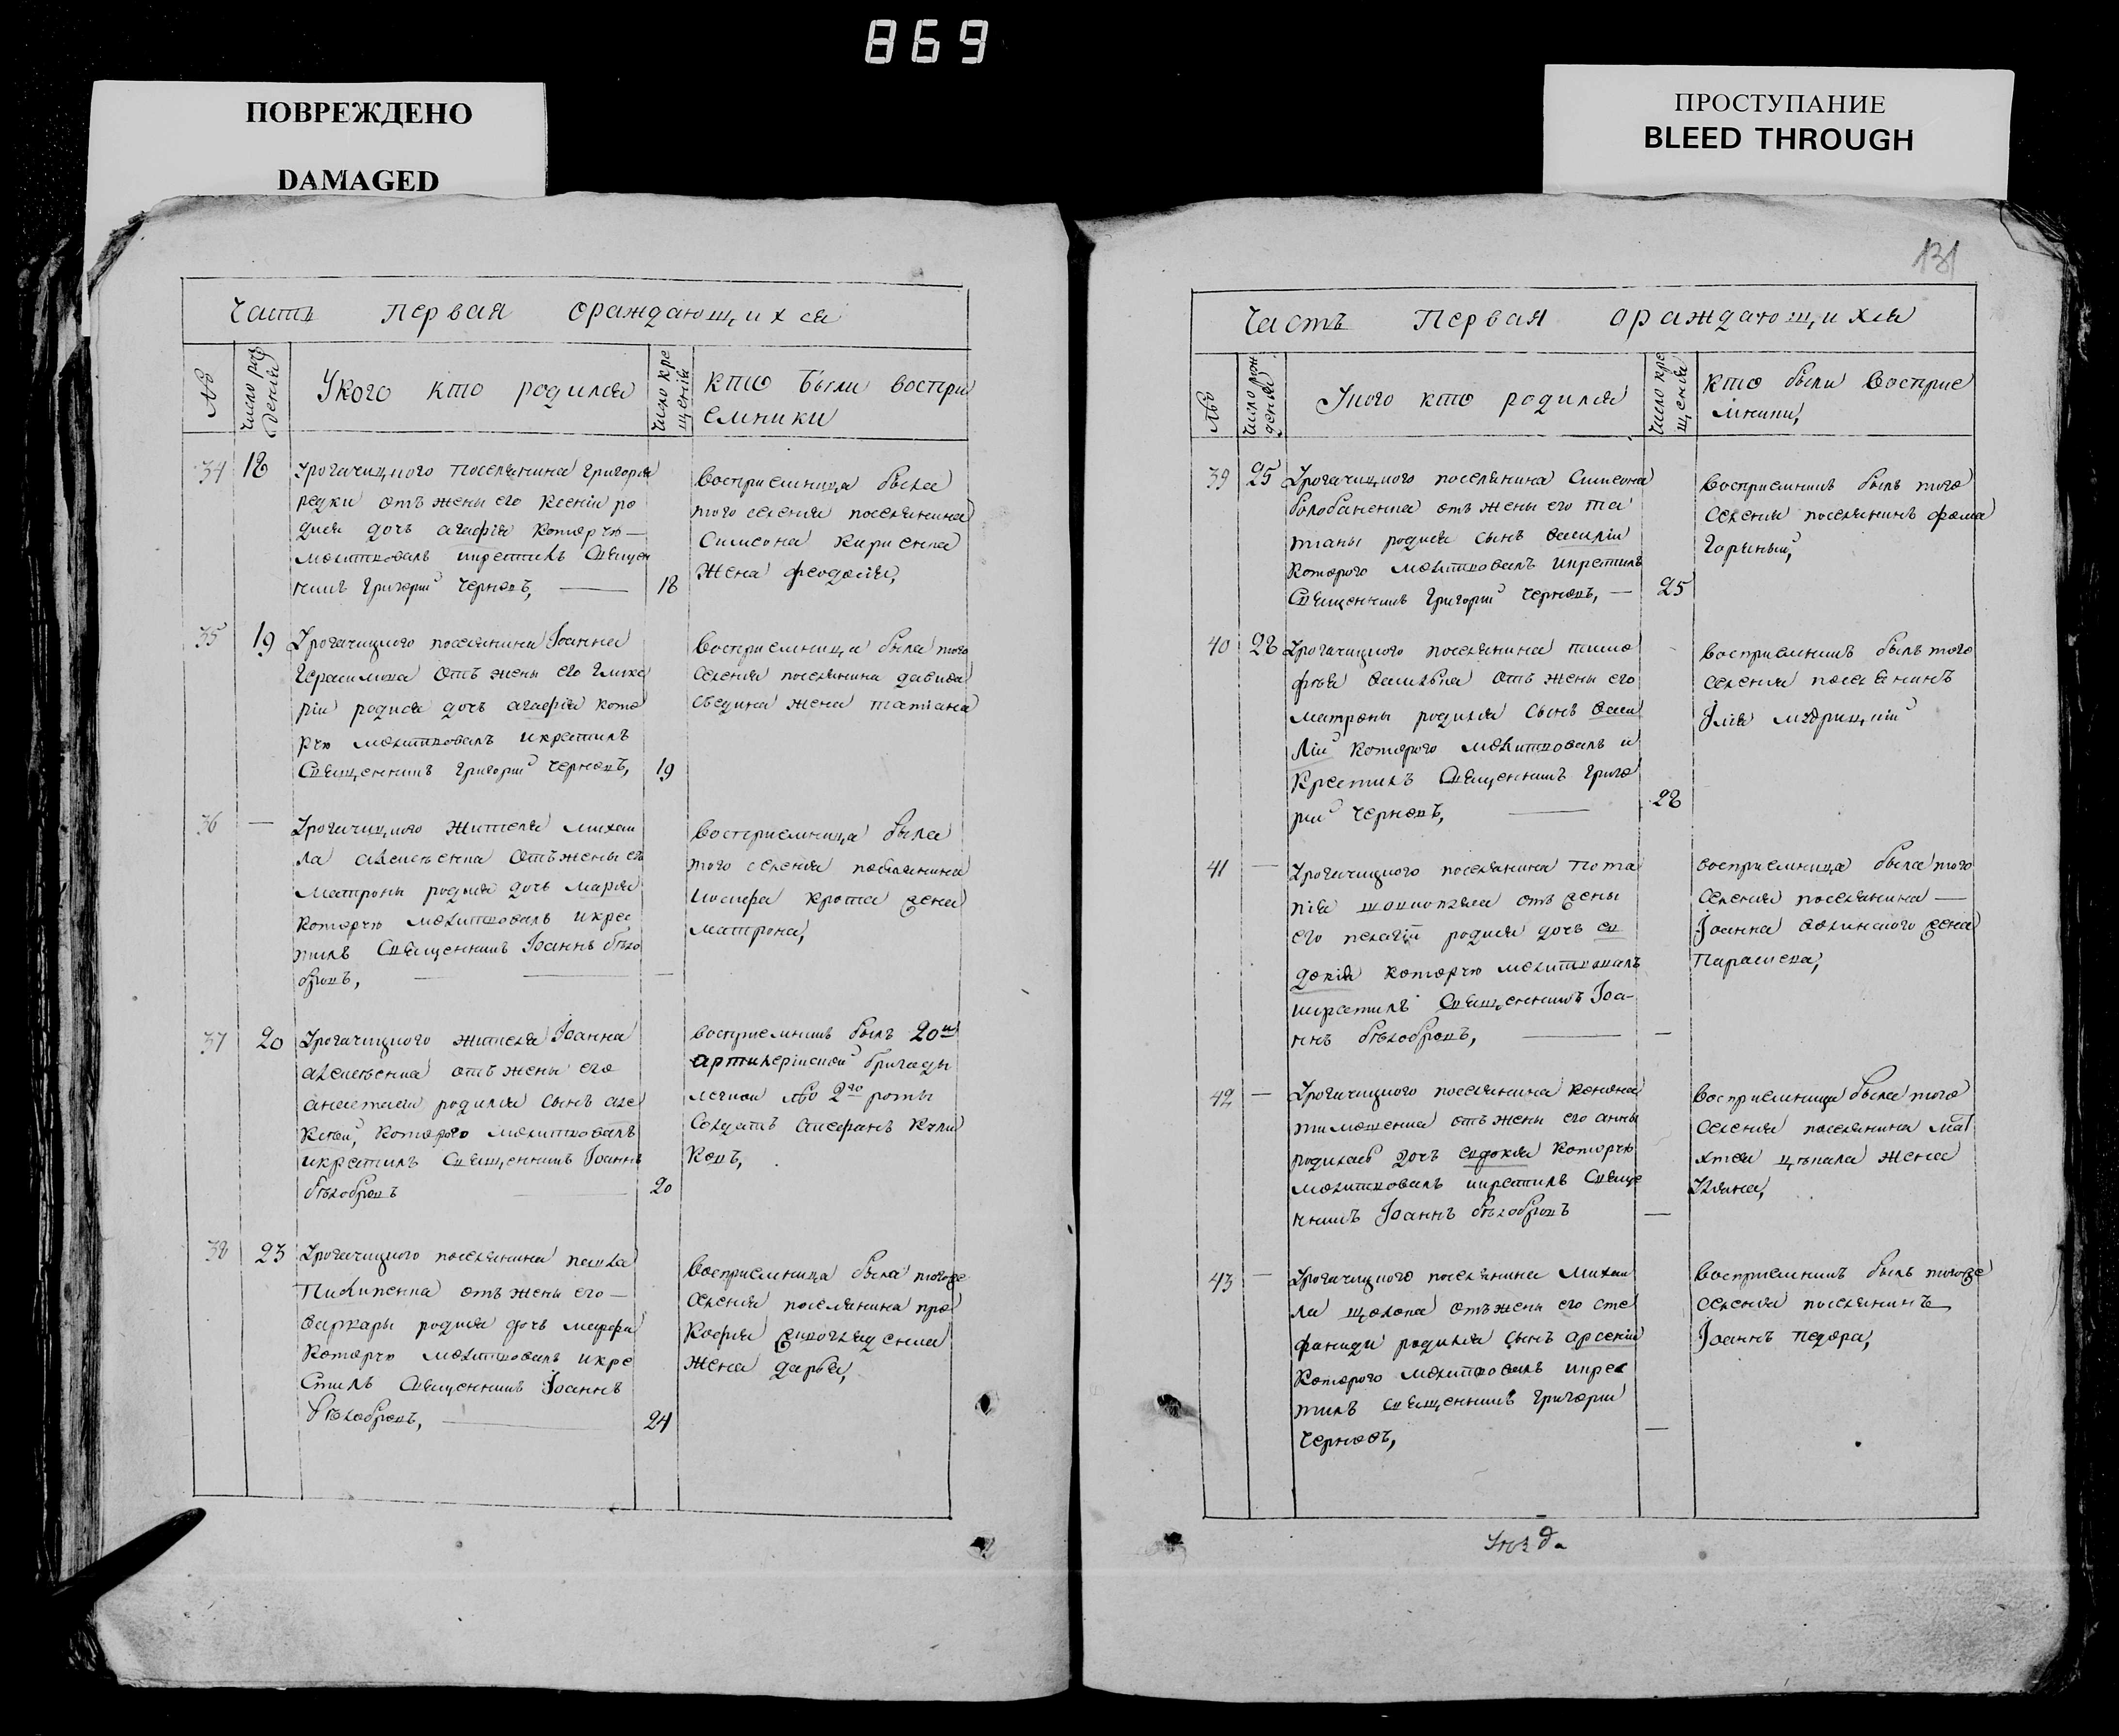 869
ПОВРЕЖДЕНО
DAMAGED
ПРОСТУПАНИЕ
BLEED THROUGH
Часть первая ораждающихся
№
число рождения
Укого кто родился
число крещения
кто были воспри
емники
34 18
Урогачицкого поселянина григория
редки отъ жены его ксеніи ро
дися дочь агафія которую
молитвовалъ икрестилъ Священ
никъ Григорий Черновъ, 18
восприемница была
того селения поселянина
Симеона Кириенка
жена феодосия,
35 19
Урогачицкого поселянина Іоанна
Герасимова отъ жены его Глике
ріи родися дочь агафія кото
рую молитвовалъ икрестилъ
Священникъ григорий Черновъ, 19
восприемница была того
селения поселянина давида
жена татіана
36 —
Урогачицкого жителя михаи
ла алексѣенка отъ жены его
матроны родися дочь мария
которую молитвовалъ икрес
тилъ Священникъ Іоаннъ бѣло
бровъ, —
восприемница была
того селения поселянина
иосифа крота жена
матрона,
37 20
Урогачицкого жителя Іоанна
алексѣенка отъ жены его
анастасіи родился сынъ але
ксѣй, которого молитвовалъ
икрестилъ Священникъ Іоаннъ
бѣлобровъ 20
восприемникъ былъ 20й
артилерійской бригады
легкой № 2го роты
солдатъ
38 23
Урогачицкого поселянина павла
Пилипенка отъ жены его —
варвары родися дочь марфа
которую молитвовалъ икре
стилъ Священникъ Іоаннъ
бѣлобровъ, 24
восприемница была тогоже
селения поселянина про
кофия
жена дарья,
131
Часть Первая ораждающихся
№
число рождения
Укого кто родился
число крещения
кто были восприе
мники,
39 25
Урогачицкого поселянина Симеона
болобаненка отъ жены его та
тіаны родися сынъ василій
которого молитвовалъ икрестилъ
Священникъ григорий Черновъ, — 25
восприемникъ былъ того
селения поселянинъ фома
Горяный,
40 28
Урогачицкого поселянина тимо
фѣя отъ жены его
матроны родился сынъ васи
лій которого молитвовалъ и
крестилъ Священникъ григо
рий Черновъ, 28
восприемникъ былъ того
селения поселянинъ
Ілія мудрицкій
41 —
Урогачицкого поселянина Пота
пія отъ жены
его пелагіи родися дочь ев
докія которую молитвовалъ
икрестилъ Священникъ Іоа-
ннъ бѣлобровъ, —
восприемница была того
селения поселянина —
Іоанна волинского жена
Параскева,
42 —
Урогачицкого поселянина конона
тимошенка отъ жены его анны
родилась дочь евдокія которую
молитвовалъ икрестилъ Свяще
нникъ Іоаннъ бѣлобровъ —
восприемница была того
селения поселянина мат
ѳѣя жена
Уляна,
43 —
Урогачицкого поселянина Михаи
ла щолока отъ жены его сте
фаниды родился сынъ арсеній
которого молитвовалъ икрес
тилъ священникъ григорий
Черновъ, —
восприемникъ былъ тогоже
селения поселянинъ
Іоаннъ педора,
Уѣзда